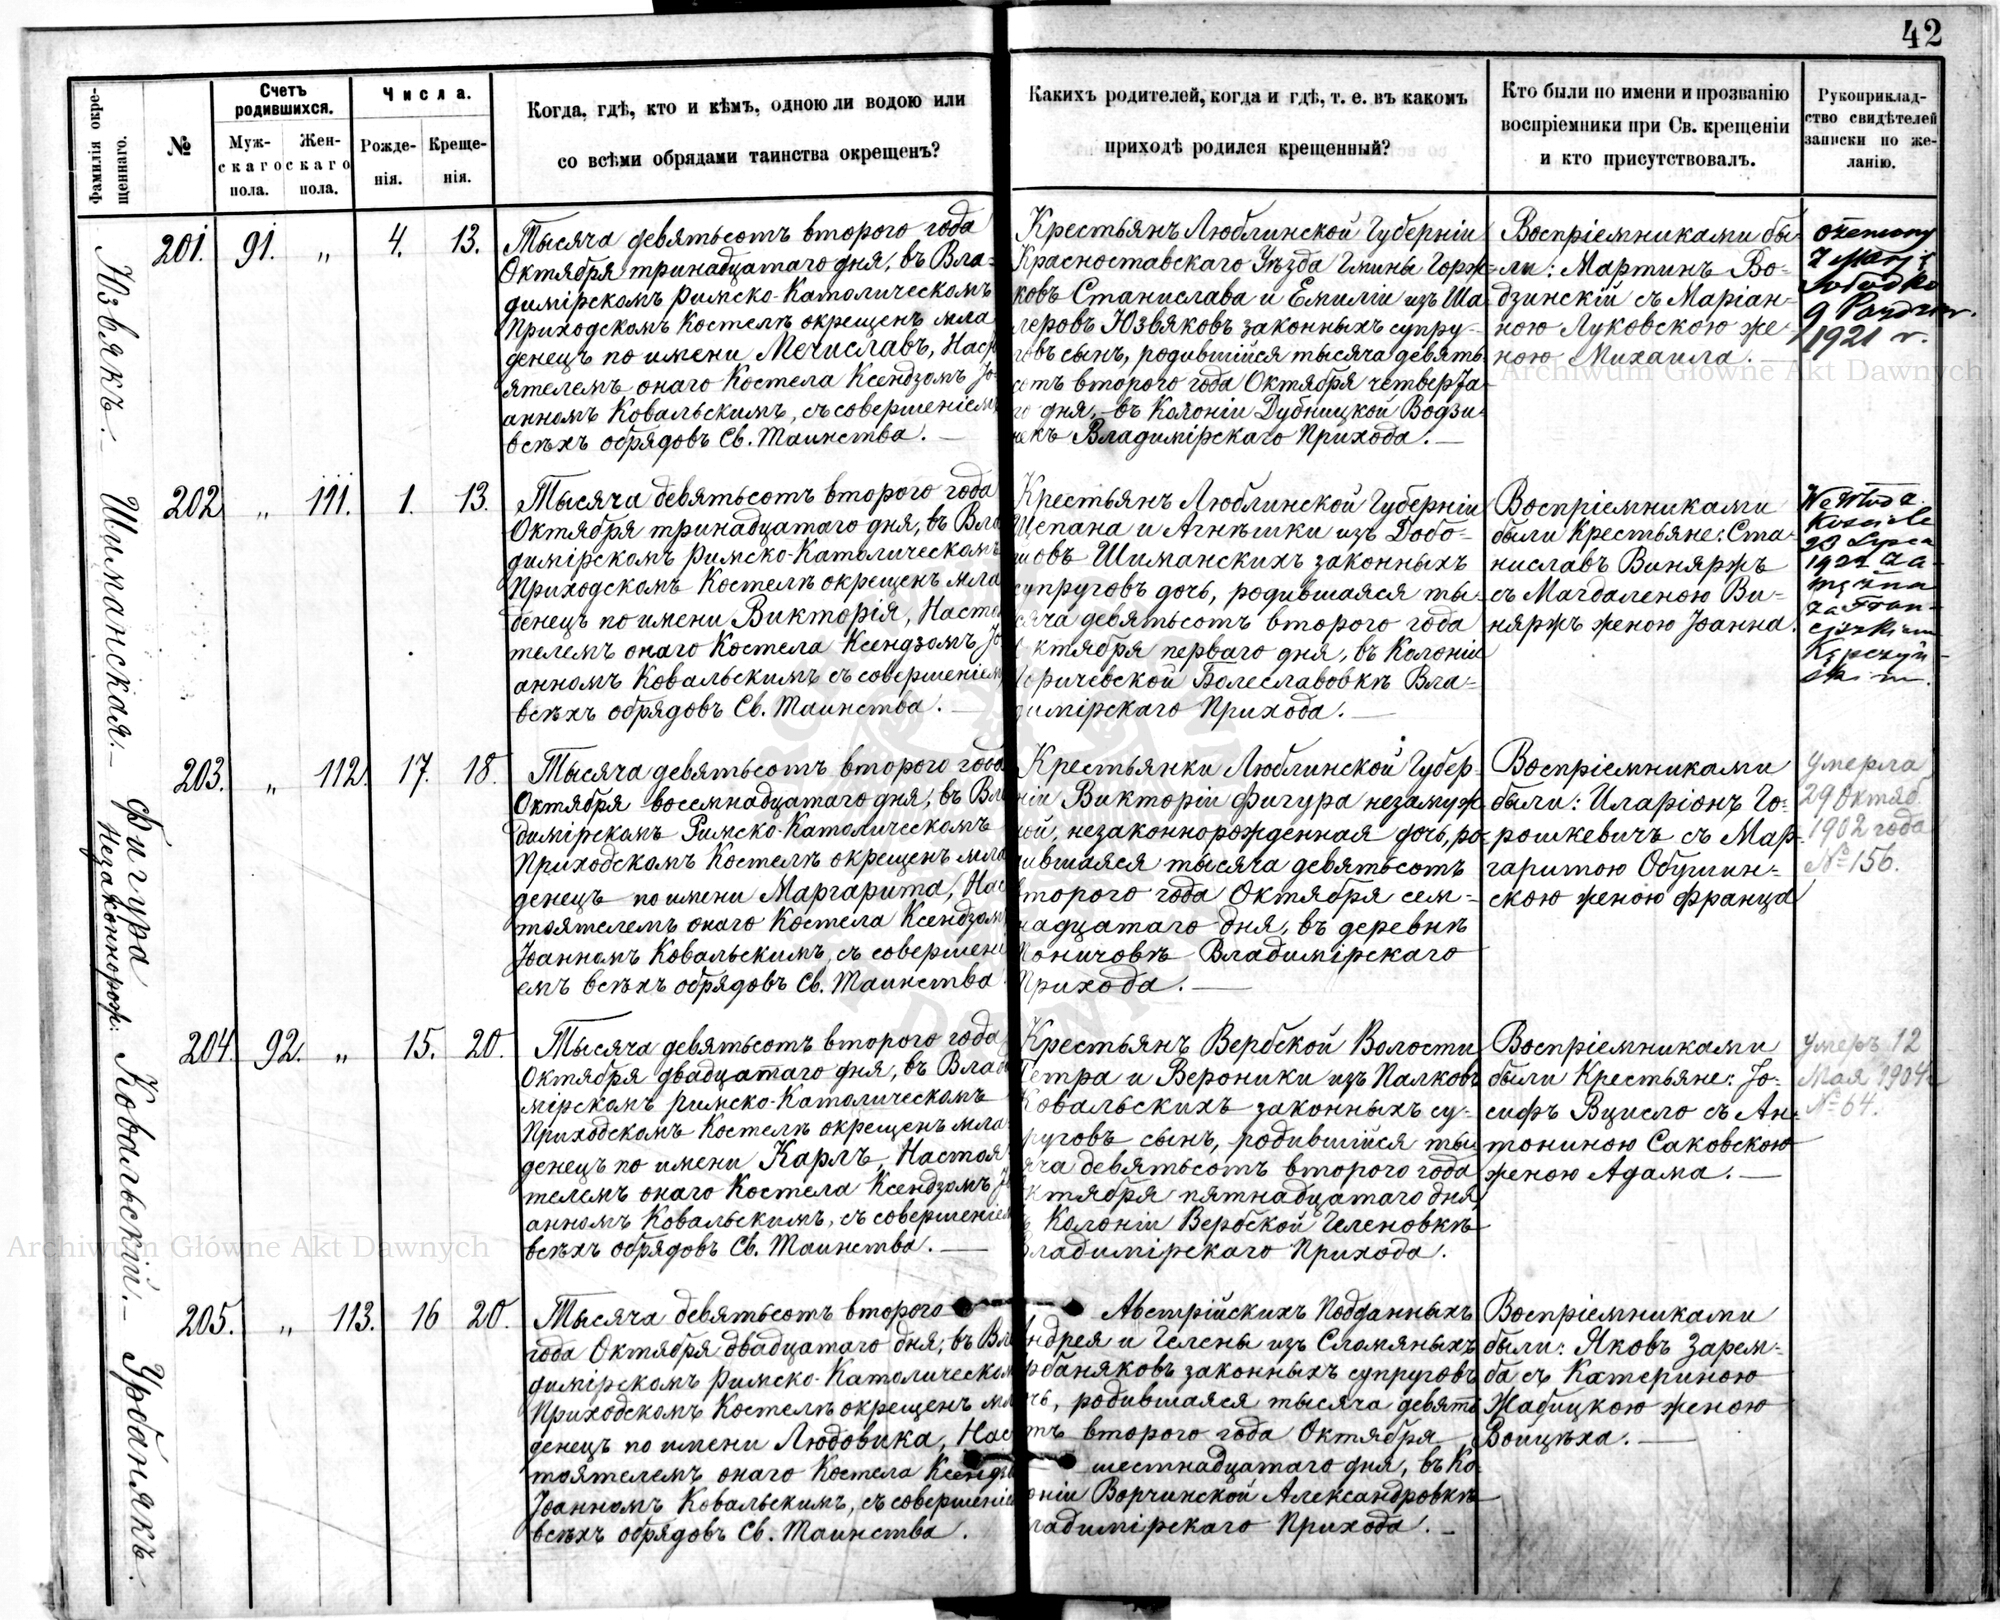 42
Фамилія окре-
щеннаго.
№
Счетъ
родившихся.
Муж-
скаго
пола.
Жен-
скаго
пола.
Числа.
Рожде-
нія.
Креще-
нія.
Когда, гдѣ, кто и кѣмъ, одною ли водою или
со всѣми обрядами таинства окрещенъ?
Какихъ родителей, когда и гдѣ, т. е. въ какомъ
приходѣ родился крещенный?
Кто были по имени и прозванію
воспріемники при Св. крещеніи
и кто присутствовалъ.
Рукоприклад-
ство свидѣтелей
записки по же-
ланію.
Юзвякъ.-
201. 91. „ 4. 13.
Тысяча девятьсотъ второго года
Октября тринадцатаго дня, въ Вла-
димірскомъ Римско-Католическомъ
Приходскомъ Костелѣ окрещенъ мла
денецъ по имени Мечиславъ, Насто
ятелемъ онаго Костела Ксендзомъ Іо-
анномъ Ковальскимъ, съ совершеніемъ
всѣхъ обрядовъ Св. Таинства.—
Крестьянъ Люблинской Губерніи
Красноставскаго Уѣзда Гмины Горж-
ковъ Станислава и Емиліи изъ Ша
леровъ Юзвяковъ законныхъ супру-
говъ сынъ, родившійся тысяча девять
сотъ второго года Октября четверта
го дня, въ Колоніи Дубницкой Водзи
некъ Владимірскаго Прихода.—
Воспріемниками бы-
ли: Мартинъ Во-
дзинскій съ Маріан-
ною Луковскою же-
ною Михаила.—
ożeniony
z Marją
9 Paździer.
1921 r.
Шиманская.-
202 „ 111. 1. 13.
Тысяча девятьсотъ второго года
Октября тринадцатаго дня, въ Вла
димірскомъ Римско-Католическомъ
Приходскомъ Костелѣ окрещенъ мла
денецъ по имени Викторія, Настоя
телемъ онаго Костела Ксендзомъ Іо
анномъ Ковальскимъ съ совершеніемъ
всѣхъ обрядовъ Св. Таинства.—
Крестьянъ Люблинской Губерніи
Щепана и Агнѣшки изъ Добо-
шовъ Шиманскихъ законныхъ
супруговъ дочь, родившаяся ты-
сяча девятьсотъ второго года
Октября перваго дня, въ Колоніи
Хоричевской Болеславовкѣ Вла-
димірскаго Прихода.—
Воспріемниками
были Крестьяне: Ста-
ниславъ Виняржъ
съ Магдаленою Ви-
няржъ женою Іоанна.
We Włodz.
Kościele
23 Lipca
1922 za-
mężna
za Fran-
ciszkiem
Kępczyń-
skim.
Фигура
Незаконнорож:
203. „ 112. 17. 18.
Тысяча девятьсотъ второго года
Октября восемнадцатаго дня, въ Вла
димірскомъ Римско-Католическомъ
Приходскомъ Костелѣ окрещенъ мла
денецъ по имени Маргарита, Нас
тоятелемъ онаго Костела Ксендзомъ
Іоанномъ Ковальскимъ, съ совершені
емъ всѣхъ обрядовъ Св. Таинства
Крестьянки Люблинской Губер-
ніи Викторіи Фигура незамуж
ной, незаконнорожденная дочь, ро-
дившаяся тысяча девятьсотъ
второго года Октября сем-
надцатаго дня, въ деревнѣ
Поничовѣ Владимірскаго
Прихода.—
Воспріемниками
были: Иларіонъ Го-
рошкевичъ съ Мар-
гаритою Обушин-
скою женою Франца
Умерла
29 Октяб.
1902 года
№ 156.
Ковальскій.-
204. 92. „ 15. 20.
Тысяча девятьсотъ второго года
Октября двадцатаго дня, въ Влади
мірскомъ Римско-Католическомъ
Приходскомъ Костелѣ окрещенъ мла
денецъ по имени Карлъ, Настоя
телемъ онаго Костела Ксендзомъ Іо
анномъ Ковальскимъ, съ совершеніем
всѣхъ обрядовъ Св. Таинства.—
Крестьянъ Вербской Волости
Петра и Вероники изъ Палковъ
Ковальскихъ законныхъ су-
пруговъ сынъ, родившійся ты
сяча девятьсотъ второго года
Октября пятнадцатаго дня,
въ Колоніи Вербской Геленовкѣ
Владимірскаго Прихода.
Воспріемниками
были Крестьяне: Іо-
сифъ Вцисло съ Ан-
тониною Саковскою
женою Адама.—
Умеръ 12
Мая 1904 г
№ 64.
Урбанякъ.
205. „ 113. 16 20.
Тысяча девятьсотъ второго
года Октября двадцатаго дня, въ Вла
димірскомъ Римско-Католическом
Приходскомъ Костелѣ окрещенъ мла
денецъ по имени Людовика, Нас
тоятелемъ онаго Костела Ксендзо
Іоанномъ Ковальскимъ, съ совершеніе
всѣхъ обрядовъ Св. Таинства.
Австрійскихъ Подданныхъ
Андрея и Гелены изъ Сломяныхъ
Урбаняковъ законныхъ супруговъ
дочь, родившаяся тысяча девять
сотъ второго года Октября
шестнадцатаго дня, въ Ко-
лоніи Ворчинской Александровкѣ
Владимірскаго Прихода.—
Воспріемниками
были: Яковъ Зарем-
ба съ Катериною
Жабицкою женою
Войцѣха.—
Archiwum Główne Akt Dawnych
Archiwum Główne Akt Dawnych